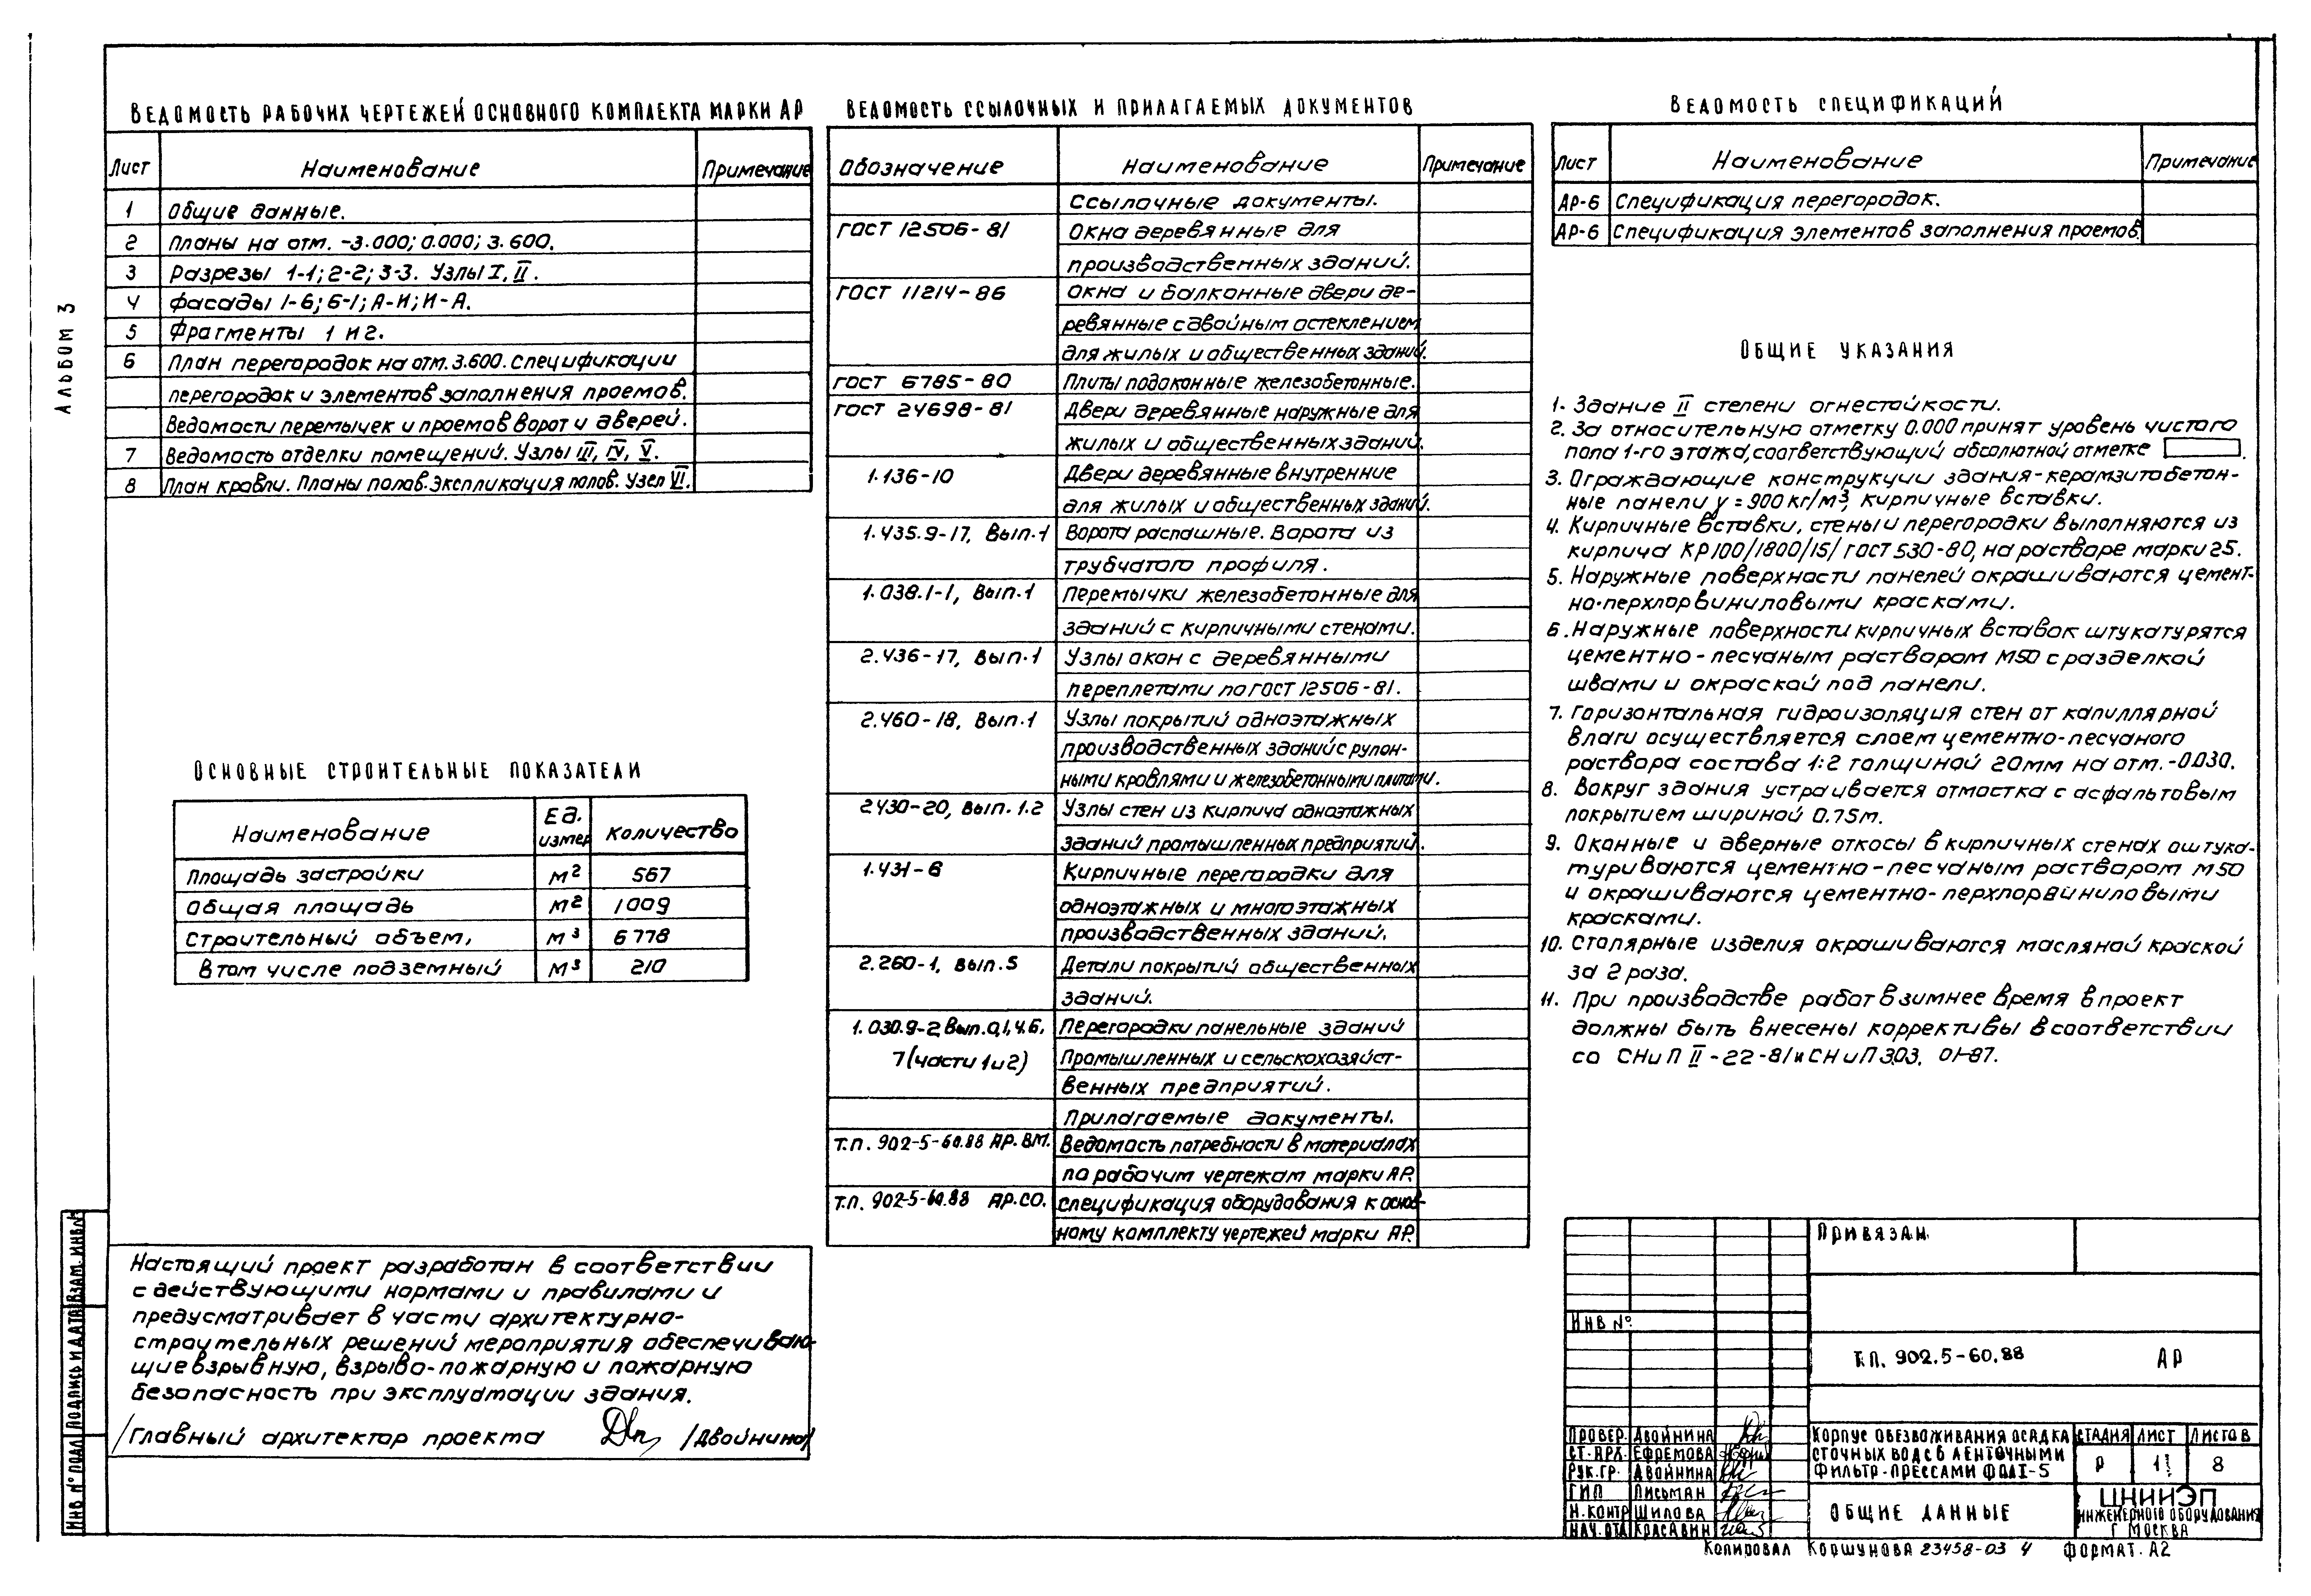 Альбом 3
Ведомость рабочих чертежей основного комплекта марки АР
Лист Наименование Примечание
1 Общие данные.
2 Планы на отм. -3.000; 0.000; 3.600.
3 Разрезы 1-1; 2-2; 3-3. Узлы I, II.
4 Фасады 1-6; 6-1; А-И; И-А.
5 Фрагменты 1 и 2.
6 План перегородок на отм. 3.600. Спецификации
перегородок и элементов заполнения проемов.
Ведомости перемычек и проемов ворот и дверей.
7 Ведомость отделки помещений. Узлы III, IV, V.
8 План кровли. Планы полов. Экспликация полов. Узел VI.
Основные строительные показатели
Наименование Ед. измер Количество
Площадь застройки м2 567
Общая площадь м2 1009
Строительный объем, м3 6778
В том числе подземный м3 210
Настоящий проект разработан в соответствии
с действующими нормами и правилами и
предусматривает в части архитектурно-
строительных решений мероприятия обеспечиваю-
щие взрывную, взрыво-пожарную и пожарную
безопасность при эксплуатации здания.
/Главный архитектор проекта /Двойнина/
Ведомость ссылочных и прилагаемых документов
Обозначение Наименование Примечание
Ссылочные документы.
ГОСТ 12506-81 Окна деревянные для
производственных зданий.
ГОСТ 11214-86 Окна и балконные двери де-
ревянные с двойным остеклением
для жилых и общественных зданий.
ГОСТ 6785-80 Плиты подоконные железобетонные.
ГОСТ 24698-81 Двери деревянные наружные для
жилых и общественных зданий.
1.136-10 Двери деревянные внутренние
для жилых и общественных зданий.
1.435.9-17, Вып.1 Ворота распашные. Ворота из
трубчатого профиля.
1.038.1-1, Вып.1 Перемычки железобетонные для
зданий с кирпичными стенами.
2.436-17, Вып.1 Узлы окон с деревянными
переплетами по ГОСТ 12506-81.
2.460-18, Вып.1 Узлы покрытий одноэтажных
производственных зданий с рулон-
ными кровлями и железобетонными плитами.
2430-20, Вып. 1.2 Узлы стен из кирпича одноэтажных
зданий промышленных предприятий.
1.431-6 Кирпичные перегородки для
одноэтажных и многоэтажных
производственных зданий.
2.260-1, Вып.5 Детали покрытий общественных
зданий.
1.030.9-2, Вып.0,1,4.6, Перегородки панельные зданий
7(части 1и2) Промышленных и сельскохозяйст-
венных предприятий.
Прилагаемые документы.
Т.П. 902-5-60.88 АР.ВМ. Ведомость потребности в материалах
по рабочим чертежам марки АР.
Т.П. 902-5-60.88 АР.СО. Спецификация оборудования к основ-
ному комплекту чертежей марки АР.
Ведомость спецификаций
Лист Наименование Примечание
АР-6 Спецификация перегородок.
АР-6 Спецификация элементов заполнения проемов.
Общие указания
1. Здание II степени огнестойкости.
2. За относительную отметку 0.000 принят уровень чистого
пола 1-го этажа, соответствующий абсолютной отметке .
3. Ограждающие конструкции здания-керамзитобетон-
ные панели γ = 900 кг/м3, кирпичные вставки.
4. Кирпичные вставки, стены и перегородки выполняются из
кирпича КР100/1800/15/ ГОСТ 530-80, на растворе марки 25.
5. Наружные поверхности панелей окрашиваются цемент-
но-перхлорвиниловыми красками.
6. Наружные поверхности кирпичных вставок штукатурятся
цементно-песчаным раствором М50 с разделкой
швами и окраской под панели.
7. Горизонтальная гидроизоляция стен от капиллярной
влаги осуществляется слоем цементно-песчаного
раствора состава 1:2 толщиной 20мм на отм. -0.030.
8. Вокруг здания устраивается отмостка с асфальтовым
покрытием шириной 0.75м.
9. Оконные и дверные откосы в кирпичных стенах оштука-
туриваются цементно-песчаным раствором М50
и окрашиваются цементно-перхлорвиниловыми
красками.
10. Столярные изделия окрашиваются масляной краской
за 2 раза.
11. При производстве работ в зимнее время в проект
должны быть внесены коррективы в соответствии
со СНиП II-22-81 и СНиП 3.03. 01-87.
Привязан
Инв №
Т.П. 902.5-60.88 АР
Провер. Двойнина
Ст.арх. Ефремова
Рук.гр. Двойнина
ГИП Письман
Н.контр Шилова
Нач.отд Красавин
Корпус обезвоживания осадка
сточных вод с 6 ленточными
фильтр-прессами
Стадия Лист Листов
Р 1 8
Общие данные
ЦНИИЭП
инженерного оборудования
г Москва
Копировал Коршунова 23458-03 4 Формат. А2
Инв № подл Подпись и дата Взам. инв №